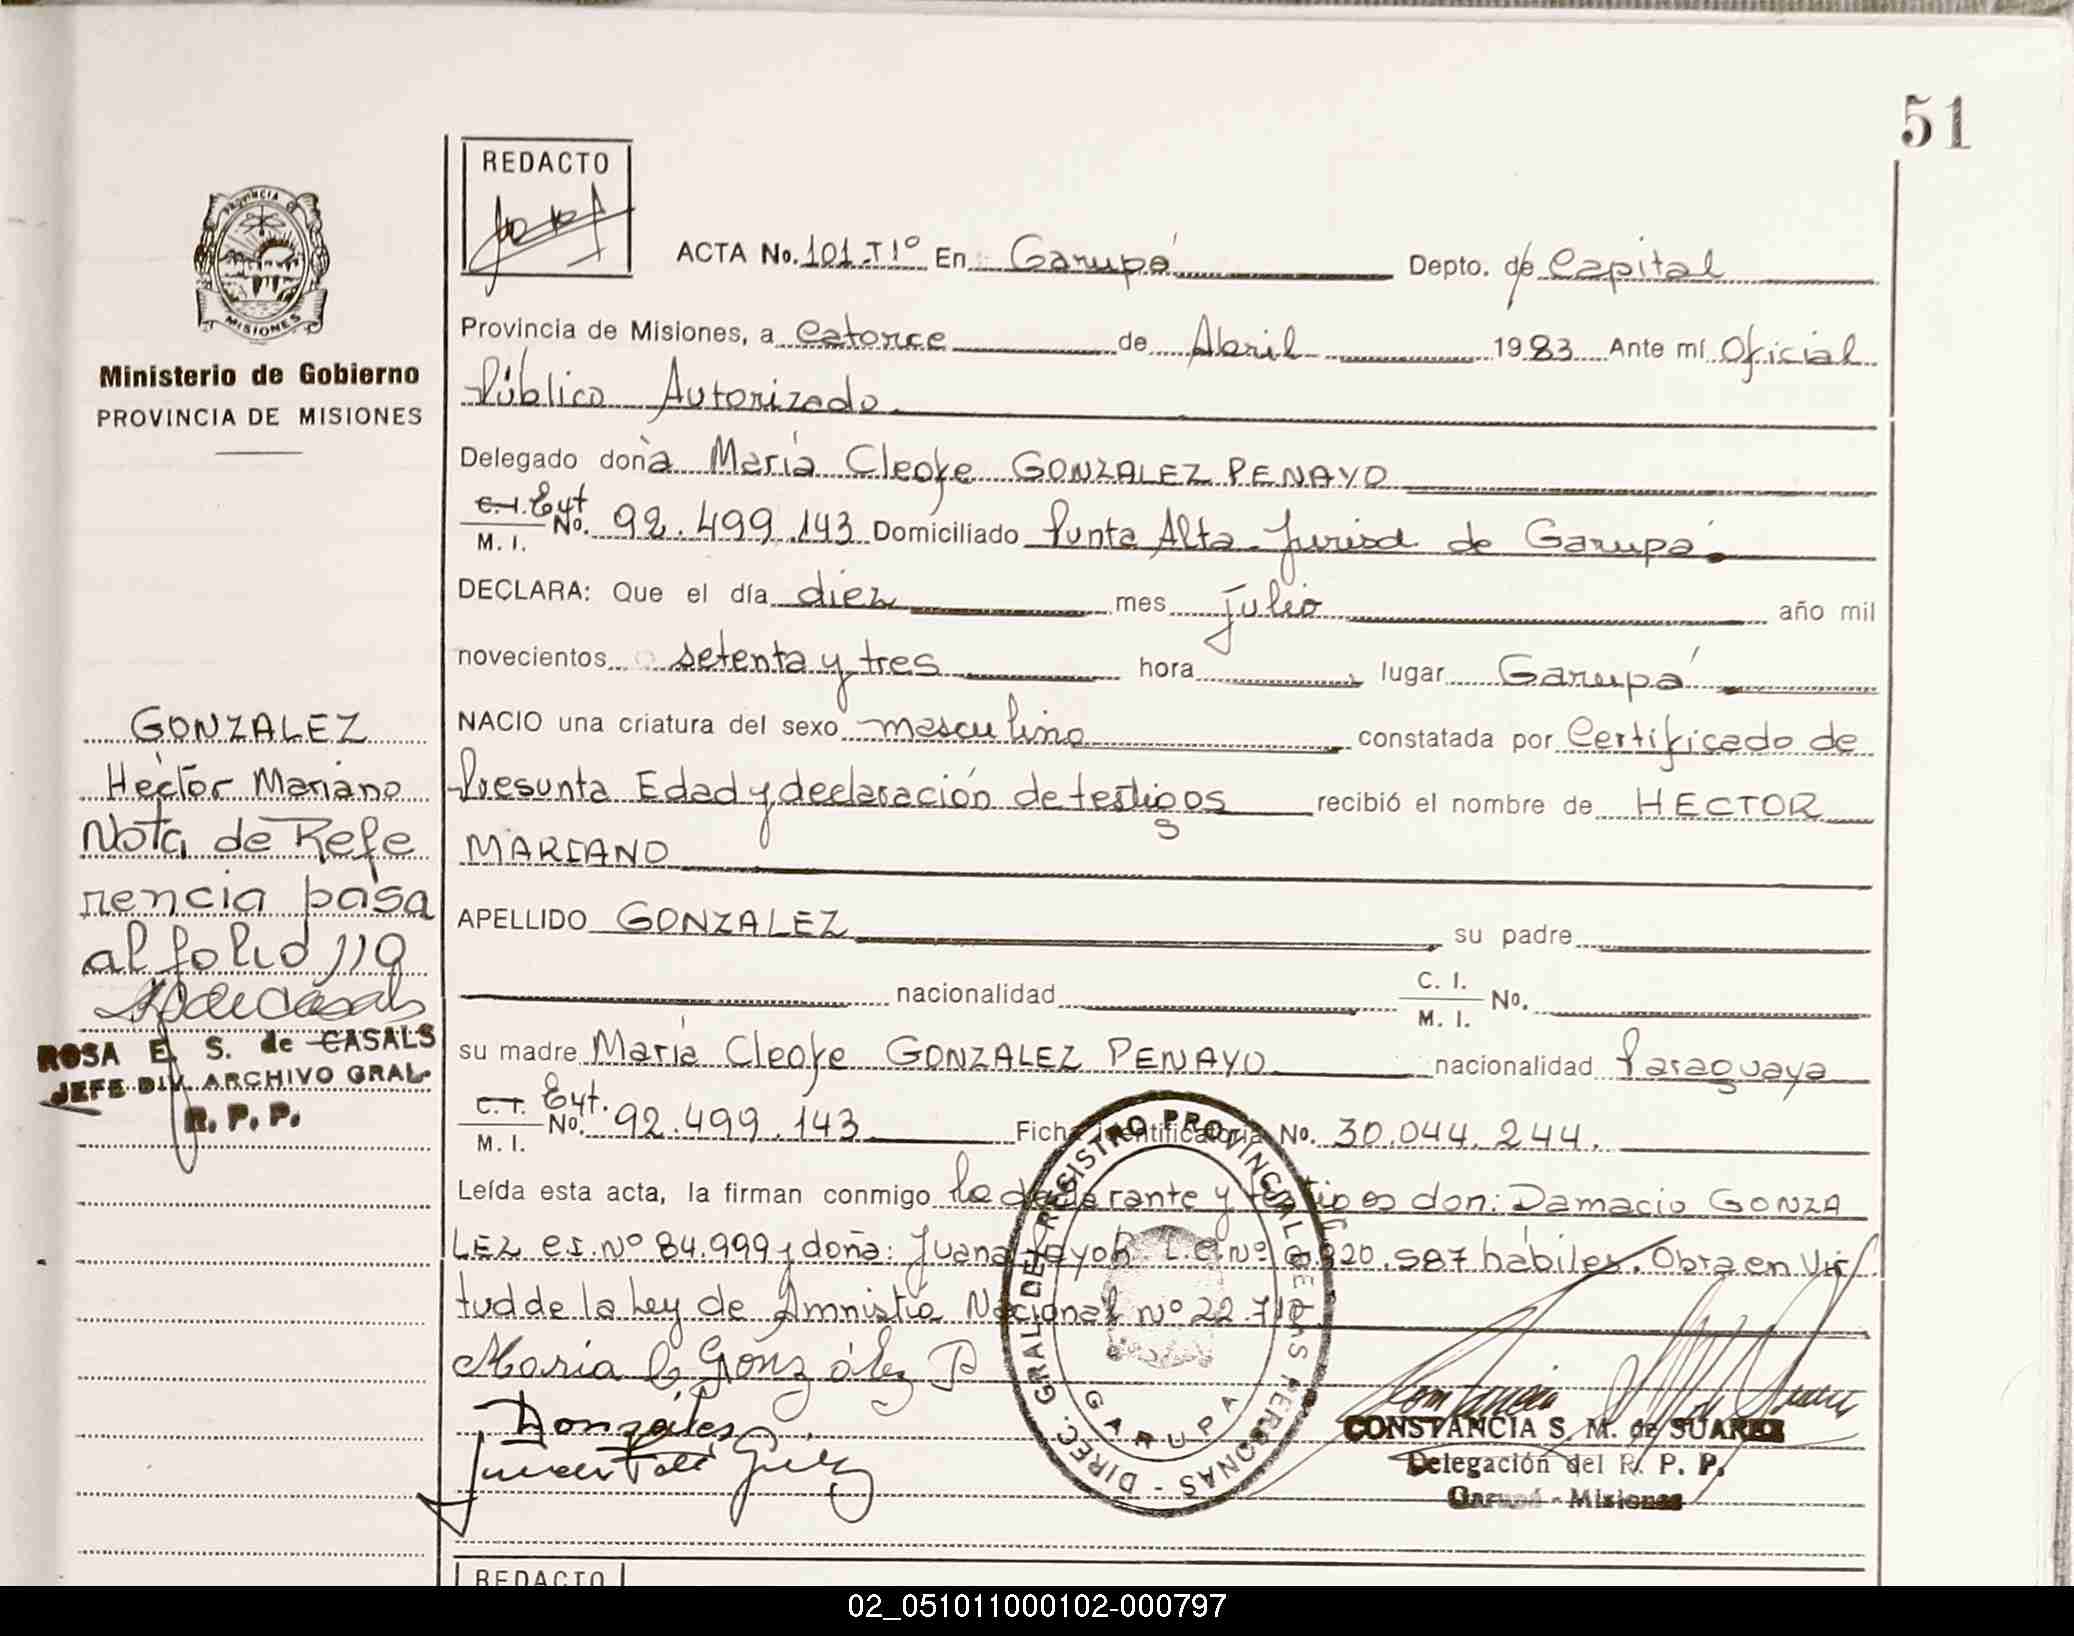 51
REDACTO
PROVINCIA
MISIONES
Ministerio de Gobierno
PROVINCIA DE MISIONES
ACTA No. 101.T1º En Garupá Depto. de Capital
Provincia de Misiones, a Catorce de Abril 1983 Ante mí Oficial
Público Autorizado
Delegado doña María Cleofe GONZALEZ PENAYO
C.I. Ext
M. I. No. 92.499.143 Domiciliado Punta Alta Jurisd. de Garupá.
DECLARA: Que el día diez mes julio año mil
novecientos setenta y tres hora lugar Garupá
NACIO una criatura del sexo masculino constatada por Certificado de
Presunta Edad y declaración de testigos recibió el nombre de HECTOR
MARIANO
APELLIDO GONZALEZ su padre
nacionalidad C. I. M. I. No.
su madre María Cleofe GONZALEZ PENAYO nacionalidad Paraguaya
C. I. Ext.
M. I. No. 92.499.143 Ficha identificatoria No. 30.044.244.
Leída esta acta, la firman conmigo la declarante y testigos don: Damacio GONZA
LEZ C.I. Nº 84.999 y doña: Juana L.C. Nº 920.587 hábiles. Obra en Vir
tud de la Ley de Amnistía Nacional Nº 22.
María C. González P
González
GONZALEZ
Héctor Mariano
Nota de Refe
rencia pasa
al folio 119
ROSA E. S. de CASALS
JEFE DIV. ARCHIVO GRAL.
R. P. P.
DIREC. GRAL. DE REGISTRO PROVINCIAL DE LAS PERSONAS -
GARUPA
CONSTANCIA S. M. de SUAREZ
Delegación del R. P. P.
Garupá - Misiones
REDACTO
02_051011000102-000797